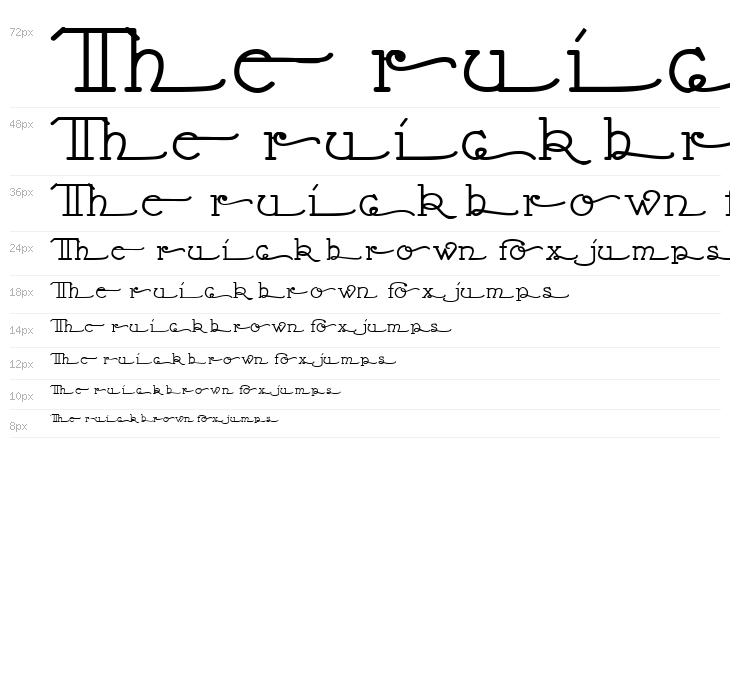 72px The ruic
48px The ruick br
36px The ruick brown f
24px The ruick brown fox jumps
18px The ruick brown fox jumps
14px The ruick brown fox jumps
12px The ruick brown fox jumps
10px The ruick brown fox jumps
8px The ruick brown fox jumps